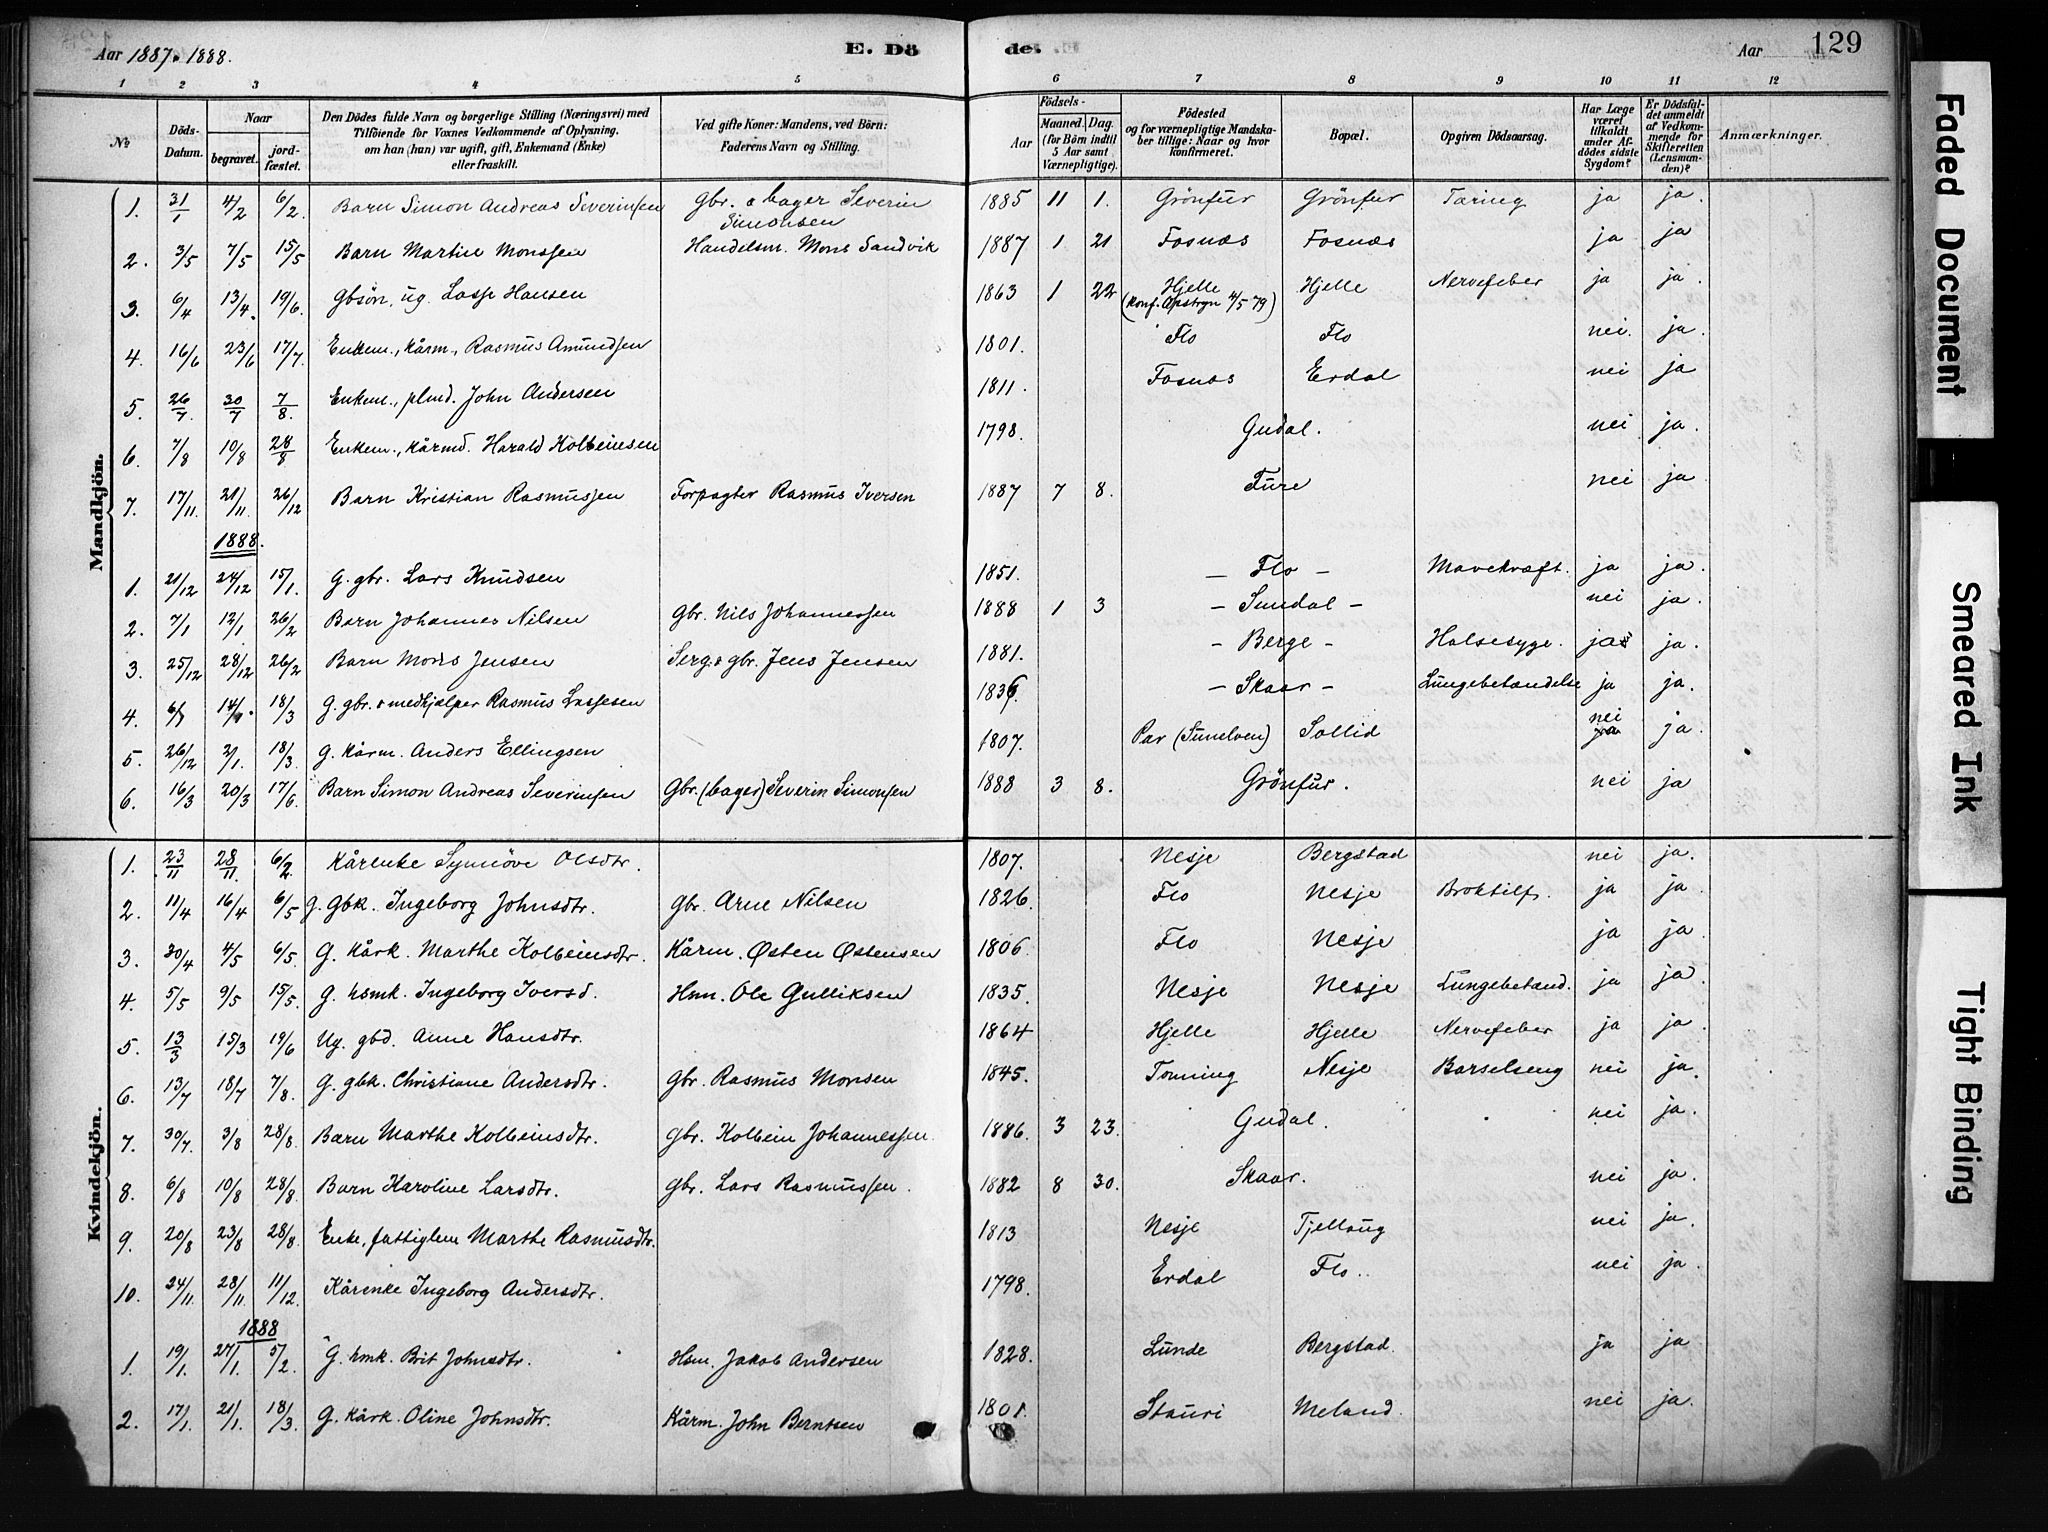 Aar 1887. 1888.
E. Dö
de.
Aar
129
1 2 3 4 5 6 7 8 9 10 11 12
№
Döds-Datum.
Naar
begravet.
jord-fæstet.
Den Dödes fulde Navn og borgerlige Stilling (Næringsvei) med Tilföiende for Voxnes Vedkommende af Oplysning, om han (hun) var ugift, gift, Enkemand (Enke) eller fraskilt.
Ved gifte Koner: Mandens, ved Börn: Faderens Navn og Stilling.
Födsels-
Aar
Maaned. Dag.
(for Börn indtil 5 Aar samt Værnepligtige).
Födested og for værnepligtige Mandskaber tillige: Naar og hvor konfirmeret.
Bopæl.
Opgiven Dödsaarsag.
Har Læge været tilkaldt under Afdödes sidste Sygdom?
Er Dödsfaldet anmeldt af Vedkommende for Skifteretten (Lensmanden)?
Anmærkninger.
Mandkjön.
1. 31/1 4/2 6/2 Barn Simon Andreas Severinsen Gbr. & bager Severin Simonsen 1885 11 1. Grönfur Grönfur Tæring ja ja.
2. 3/5 7/5 15/5 Barn Martin Monssen Handelsm. Mons Sandvik 1887 1 21 Fosnæs Fosnæs ja ja
3. 6/4 13/4. 19/6 Gbsön, ug. Lasse Hansen 1863 1 22 Hjelle (Konf. Opstryn 4/5 79) Hjelle Nervefeber ja ja
4. 16/6 23/6 17/7 Enkem., kårm., Rasmus Amundsen 1801. Flo Flo nei. ja.
5. 26/7 30/7 7/8. Enkem., plmd. John Andersen 1811. Fosnæs Erdal nei ja
6. 7/8 10/8 28/8 Enkem., kårmd. Harald Kolbeinsen 1798. Gudal. nei ja.
7. 17/11. 21/11. 26/12 Barn Kristian Rasmussen Forpagter Rasmus Iversen 1887 7 8. Fure nei ja.
1888.
1. 21/12 24/12 15/1. G. gbr. Lars Knudsen 1851. – Flo – Mavekræft. ja ja.
2. 7/1 12/1 26/2 Barn Johannes Nilsen Gbr. Nils Johannessen 1888 1 3 – Sundal – nei ja.
3. 25/12 28/12 26/2 Barn Mons Jensen Serg. & gbr. Jens Jensen 1881. – Berge – Halsesyge. ja ja.
4. 18/3 G. gbr. & medhjælper Rasmus Lassesen 1836. – Skaar – Lungebetændelse ja ja.
5. 26/12 2/1. 18/3. G. kårm. Anders Ellingsen 1807. Par (Sunelven) Sollid nei ja.
6. 16/3 20/3 17/6. Barn Simon Andreas Severinsen Gbr. (bager) Severin Simonsen 1888 3 8. Grönfur. nei ja
Kvindekjön.
1. 23/11 28/11. 6/2. Kårenke Synnöve Olsdtr. 1807. Nesje Bergstad nei ja.
2. 11/4 16/4 6/5 G. gbk. Ingeborg Johnsdtr. Gbr. Arne Nilsen 1826. Flo Nesje Broktilf. ja ja.
3. 30/4 4/5 6/5. G. kårk. Marthe Kolbeinsdtr. Kårm. Østen Østensen 1806 Flo Nesje ja ja.
4. 5/5 9/5 15/5. G. hsmk. Ingeborg Iversd. Hsm. Ole Gulliksen 1835. Nesje Nesje Lungebetænd. ja ja
5. 13/3 15/3 19/6 Ug. gbd. Anne Hansdtr. 1864 Hjelle Hjelle Nervefeber ja ja.
6. 13/7 18/7 7/8. G. gbk. Christiane Andersdtr. Gbr. Rasmus Monsen 1845. Tonning Nesje Barselseng nei ja.
7. 30/7. 3/8 28/8. Barn Marthe Kolbeinsdtr. Gbr. Kolbein Johannessen. 1886. 3 23. Gudal. nei ja.
8. 6/8 10/8 28/8. Barn Karoline Larsdtr. Gbr. Lars Rasmussen. 1882 8 30. Skaar. nei ja.
9. 20/8 23/8 28/8. Enke, fattiglem Marthe Rasmusdtr. 1813 Nesje Tjellaug nei ja.
10. 24/11. 28/11. 11/12. Kårenke Ingeborg Andersdtr. 1798. Erdal Flo. nei ja.
1888
1. 19/1. 27/1. 5/2. G. hmk. Brit Johnsdtr. Hsm. Jakob Andersen 1828. Lunde Bergstad. ja ja
2. 17/1. 21/1. 18/3. G. kårk. Oline Johnsdtr. Kårm. John Berntsen 1801. Stauri Meland. nei ja.
Faded Document
Smeared Ink
Tight Binding